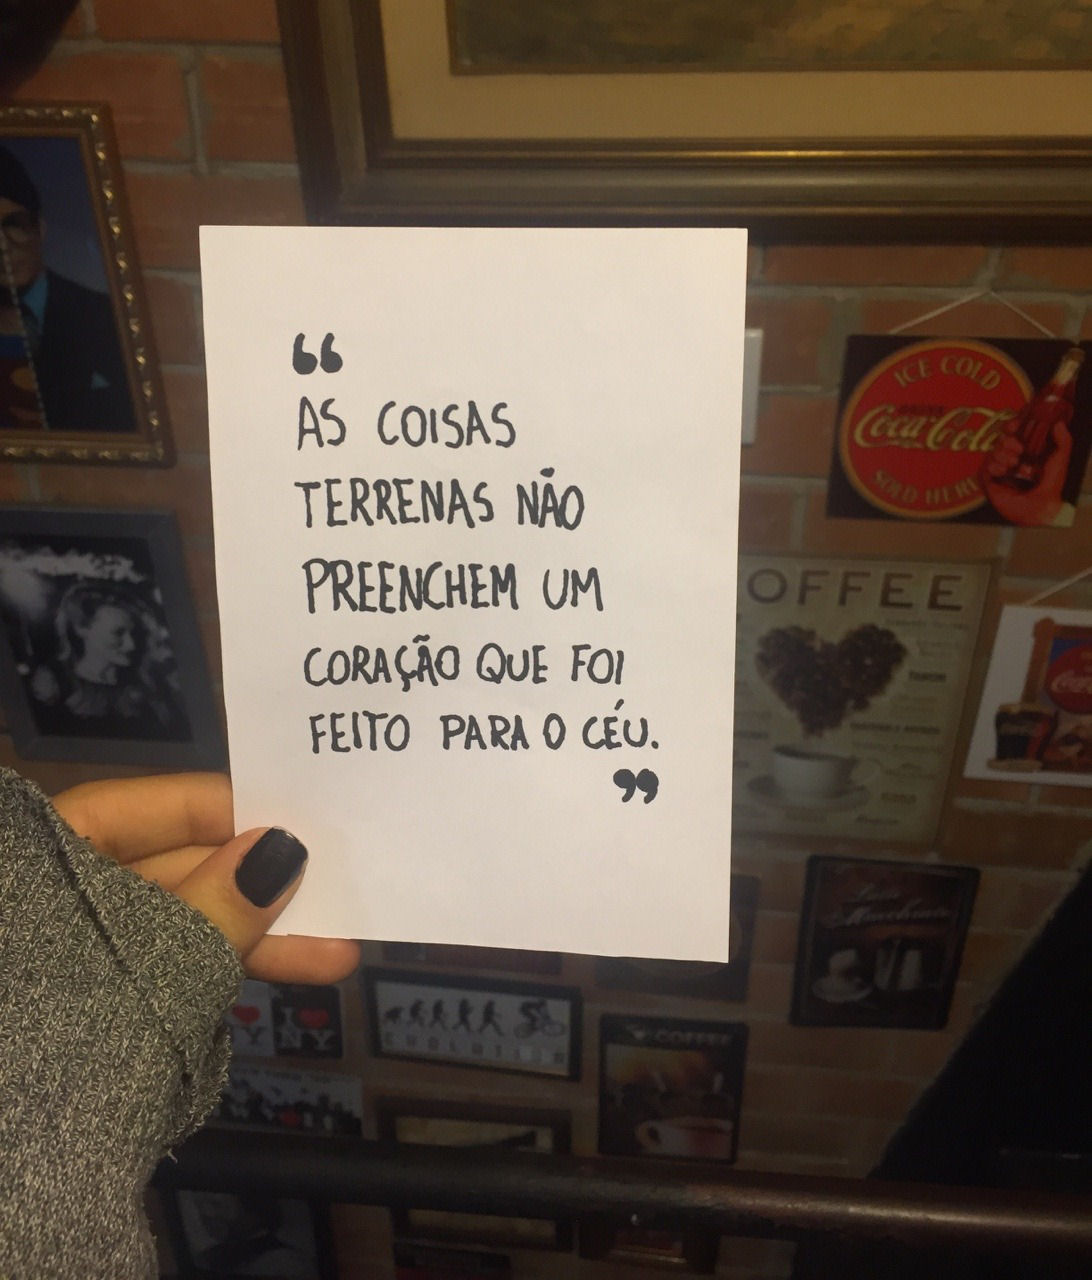 “
AS COISAS
TERRENAS NÃO
PREENCHEM UM
CORAÇÃO QUE FOI
FEITO PARA O CÉU.
”
ICE COLD
DRINK
Coca-Cola
SOLD HERE
OFFEE
EVOLUTION
COFFEE
Macchiato
NY